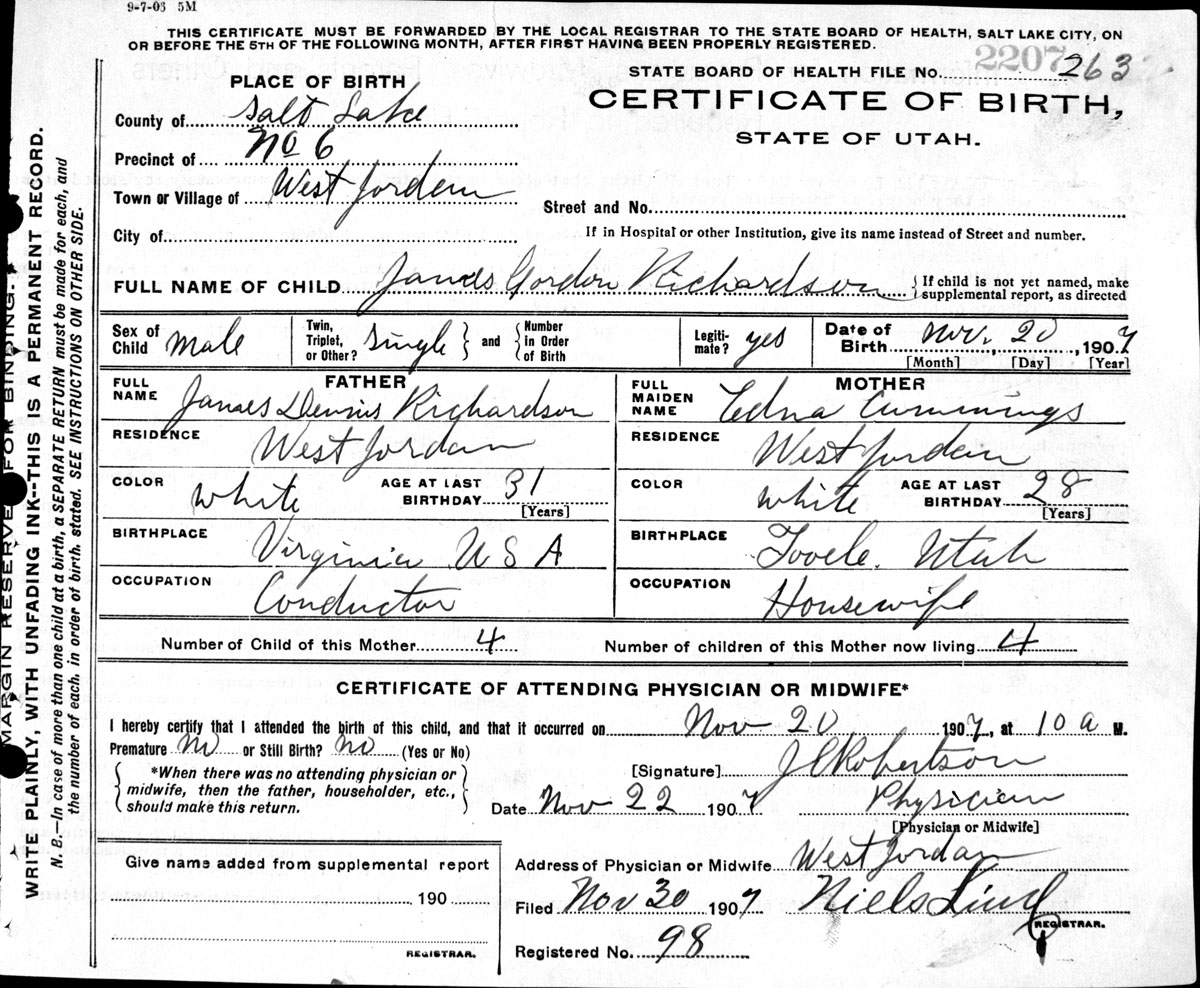 9-7-03 5M
THIS CERTIFICATE MUST BE FORWARDED BY THE LOCAL REGISTRAR TO THE STATE BOARD OF HEALTH, SALT LAKE CITY, ON
OR BEFORE THE 5TH OF THE FOLLOWING MONTH, AFTER FIRST HAVING BEEN PROPERLY REGISTERED.
2207
STATE BOARD OF HEALTH FILE No. 263
CERTIFICATE OF BIRTH,
STATE OF UTAH.
PLACE OF BIRTH
County of Salt Lake
Precinct of No 6
Town or Village of West Jordan
Street and No.
City of
If in Hospital or other Institution, give its name instead of Street and number.
FULL NAME OF CHILD James Gordon Richardson { If child is not yet named, make
supplemental report, as directed
Sex of Child male
Twin, Triplet, or Other? single } and { Number in Order of Birth
Legiti-mate? yes
Date of Birth Nov. 20, 1907
[Month] [Day] [Year]
FATHER
FULL NAME James Dennis Richardson
RESIDENCE West Jordan
COLOR white AGE AT LAST BIRTHDAY 31
[Years]
BIRTHPLACE Virginia U S A
OCCUPATION Conductor
MOTHER
FULL MAIDEN NAME Edna Cummings
RESIDENCE West Jordan
COLOR white AGE AT LAST BIRTHDAY 28
[Years]
BIRTHPLACE Tooele. Utah
OCCUPATION Housewife
Number of Child of this Mother 4 Number of children of this Mother now living 4
CERTIFICATE OF ATTENDING PHYSICIAN OR MIDWIFE*
I hereby certify that I attended the birth of this child, and that it occurred on Nov 20 1907, at 10 a M.
Premature No or Still Birth? No (Yes or No)
{ *When there was no attending physician or
midwife, then the father, householder, etc.,
should make this return. }
[Signature] J C Robertson
Date Nov 22 1907 Physician
[Physician or Midwife]
Give name added from supplemental report
190
REGISTRAR.
Address of Physician or Midwife West Jordan
Filed Nov 30 1907 Niels Lind
REGISTRAR.
Registered No. 98
MARGIN RESERVE FOR BINDING.
WRITE PLAINLY, WITH UNFADING INK--THIS IS A PERMANENT RECORD.
N. B.—In case of more than one child at a birth, a SEPARATE RETURN must be made for each, and
the number of each, in order of birth, stated. SEE INSTRUCTIONS ON OTHER SIDE.